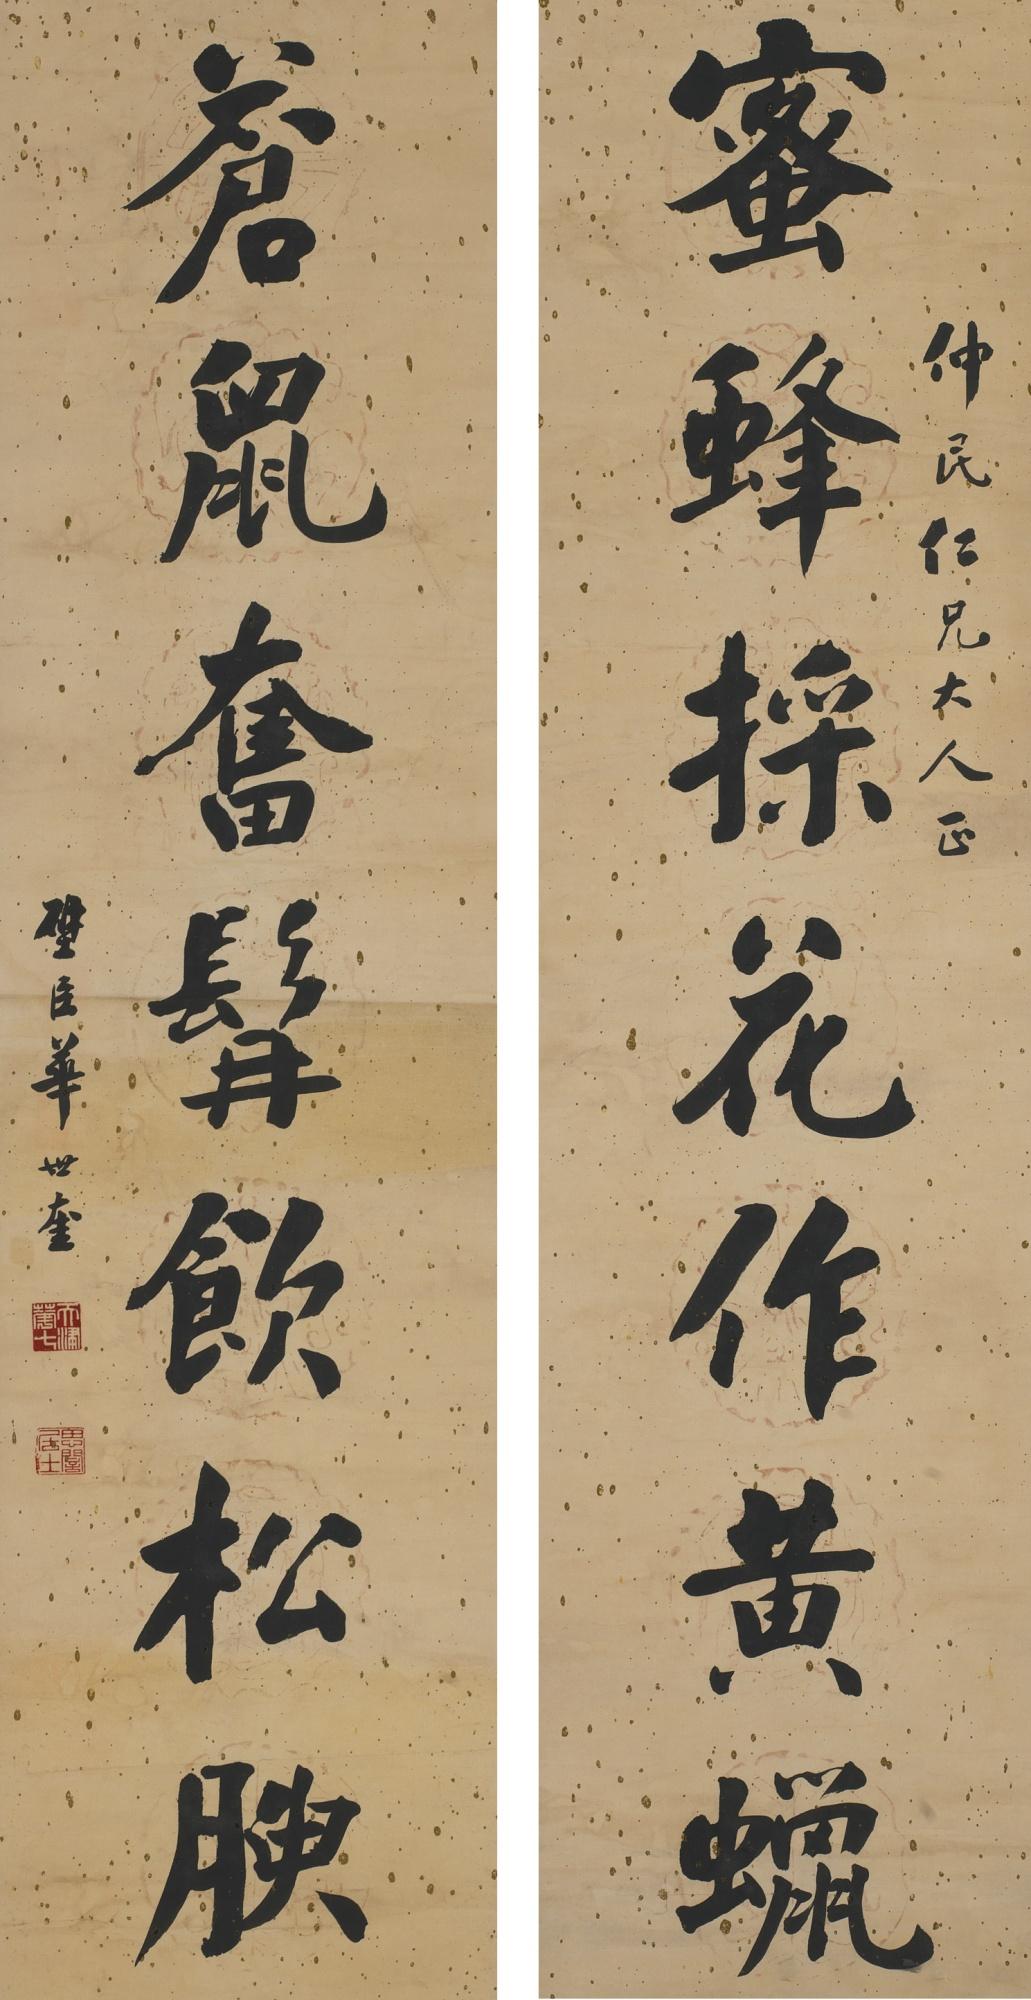 蜜蜂採花作黃蠟
仲民仁兄大人正
蒼鼠奮髯飲松腴
璧臣華世奎
天津
思闇居士